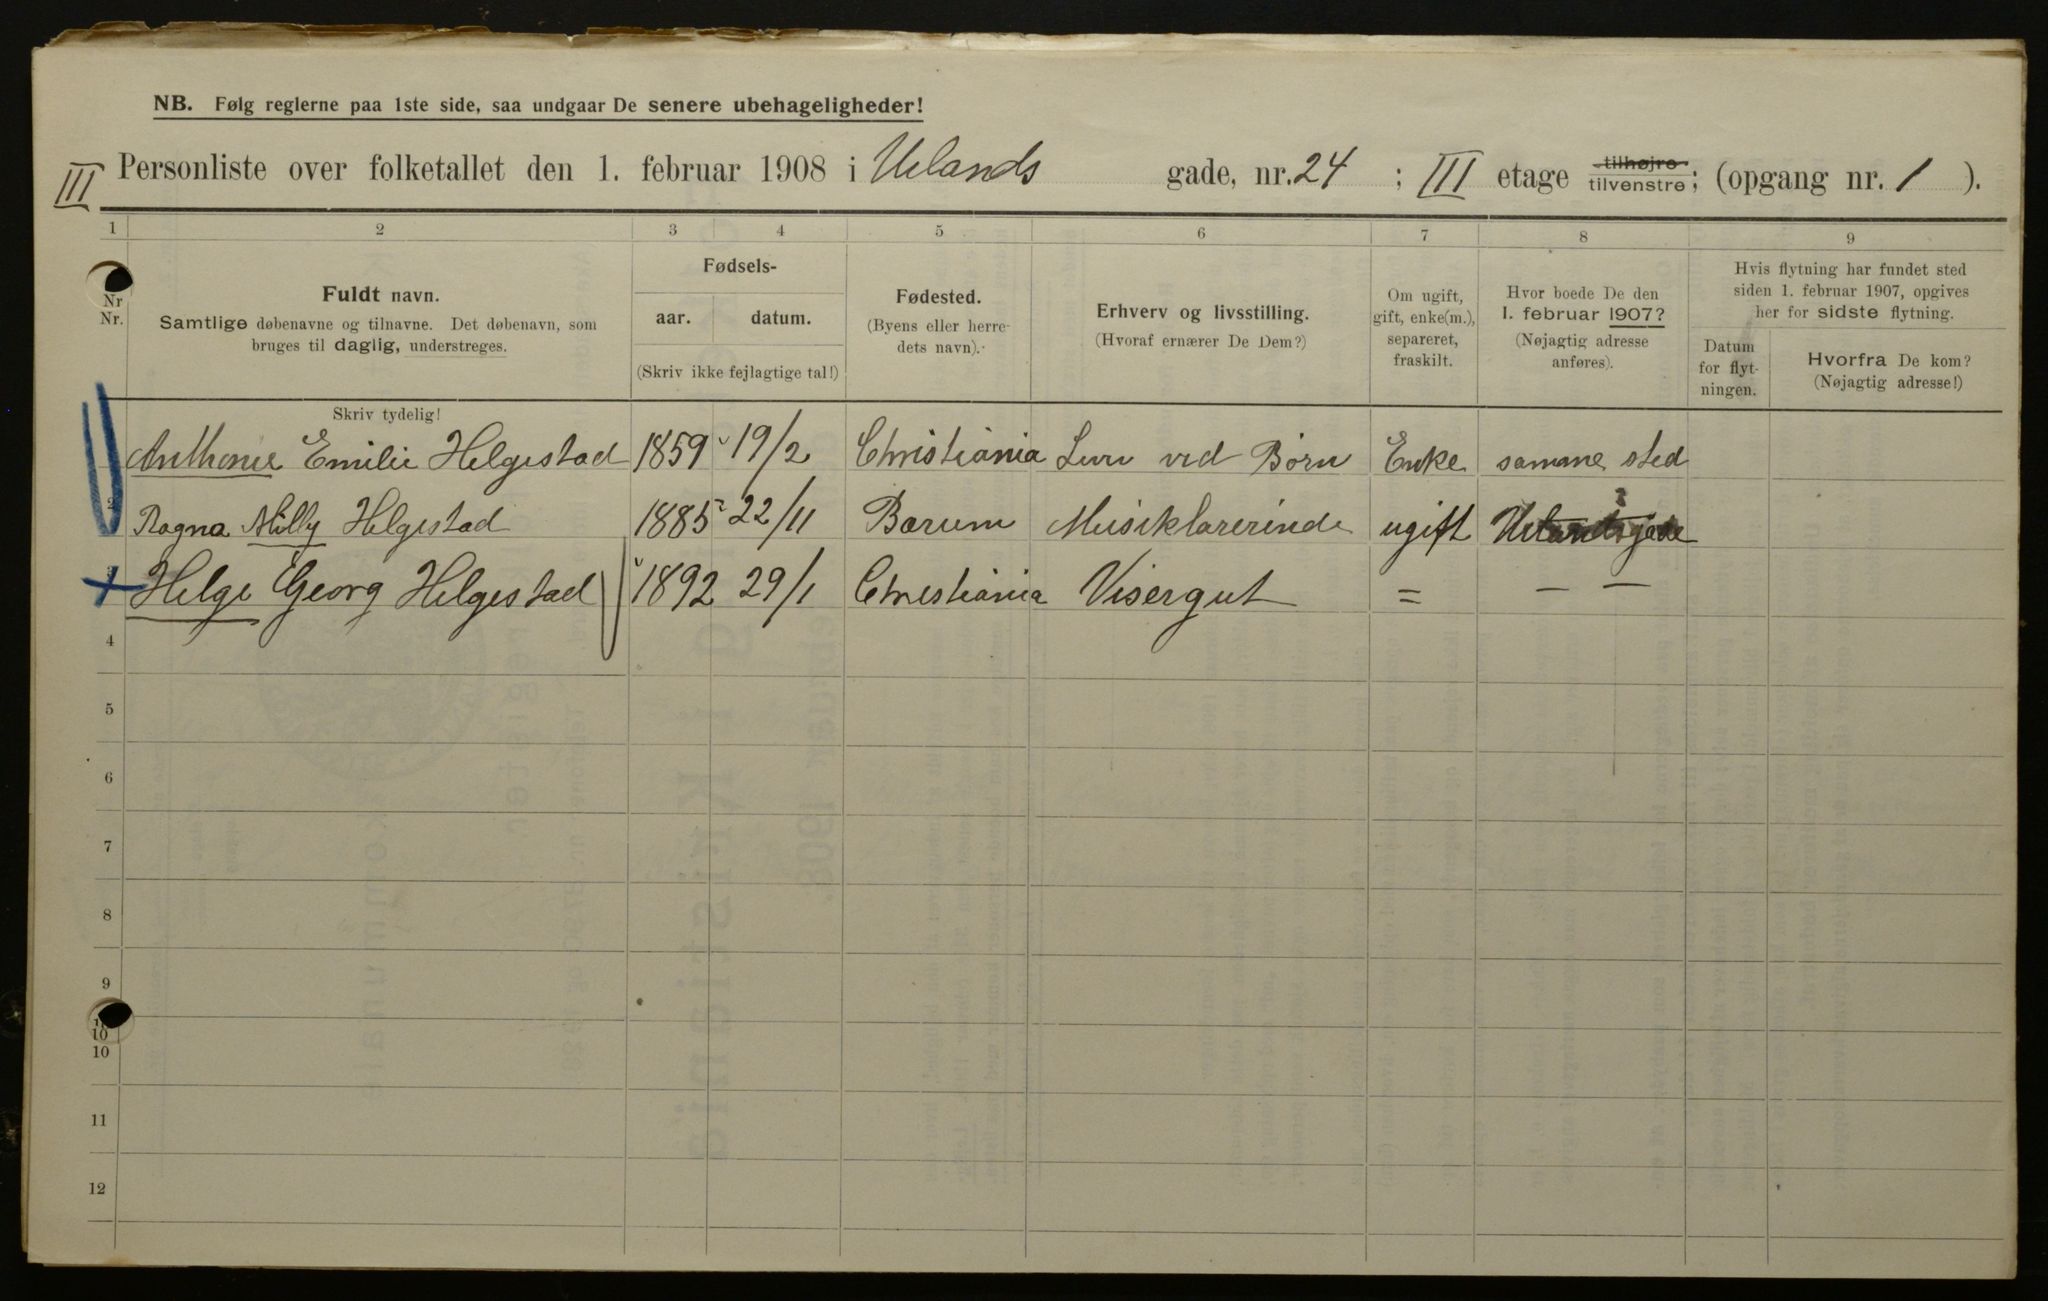 NB. Følg reglerne paa 1ste side, saa undgaar De senere ubehageligheder!
III Personliste over folketallet den 1. februar 1908 i Uelands gade, nr. 24 ; III etage tilhøjre tilvenstre; (opgang nr. 1 ).
1 2 3 4 5 6 7 8 9
Nr. Nr.
Fuldt navn.
Samtlige døbenavne og tilnavne. Det døbenavn, som
bruges til daglig, understreges.
Skriv tydelig!
Fødsels-
aar. datum.
(Skriv ikke fejlagtige tal!)
Fødested.
(Byens eller herre-
dets navn).
Erhverv og livsstilling.
(Hvoraf ernærer De Dem?)
Om ugift,
gift, enke(m.),
separeret,
fraskilt.
Hvor boede De den
1. februar 1907?
(Nøjagtig adresse
anføres).
Hvis flytning har fundet sted
siden 1. februar 1907, opgives
her for sidste flytning.
Datum
for flyt-
ningen.
Hvorfra De kom?
(Nøjagtig adresse!)
Anthonie Emilie Helgestad 1859 19/2 Christiania Lever ved Børn Enke samme sted
2 Ragna Milly Helgestad 1885 22/11 Bærum Musiklærerinde ugift Uelandsgade
3 Helge Georg Helgestad 1892 29/1 Christiania Visergut = — —
4
5
6
7
8
9
10
10
10
11
12